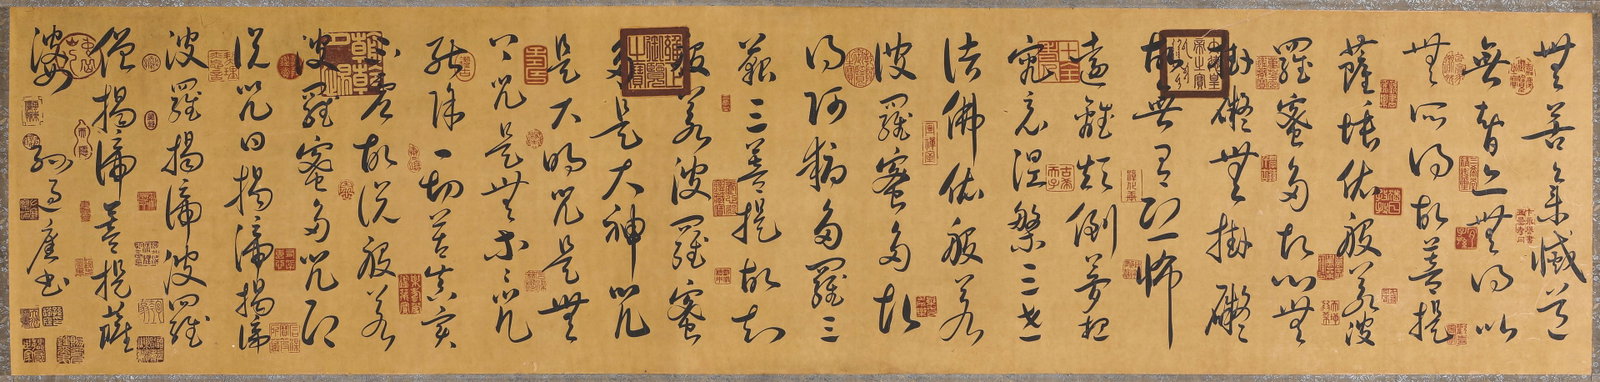 無苦集滅道
無智亦無得以
無所得故菩提
薩埵依般若波
羅蜜多故心無
掛礙無掛礙
故無有恐怖
遠離顛倒夢想
究竟涅槃三世
諸佛依般若
波羅蜜多故
得阿耨多羅三
藐三菩提故知
般若波羅蜜
多是大神咒
是大明咒是無
上咒是無等等咒
能除一切苦真實
不虛故說般若
波羅蜜多咒即
說咒曰揭諦揭諦
波羅揭諦波羅
僧揭諦菩提薩
婆 孫過庭書